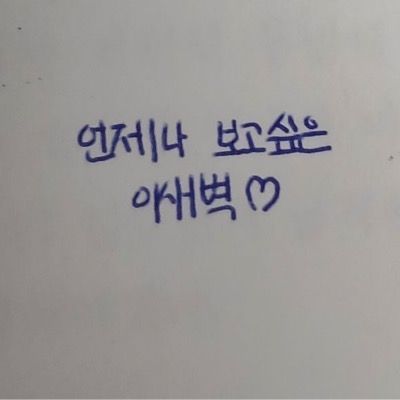 언제나 보고싶은
이새벽♡